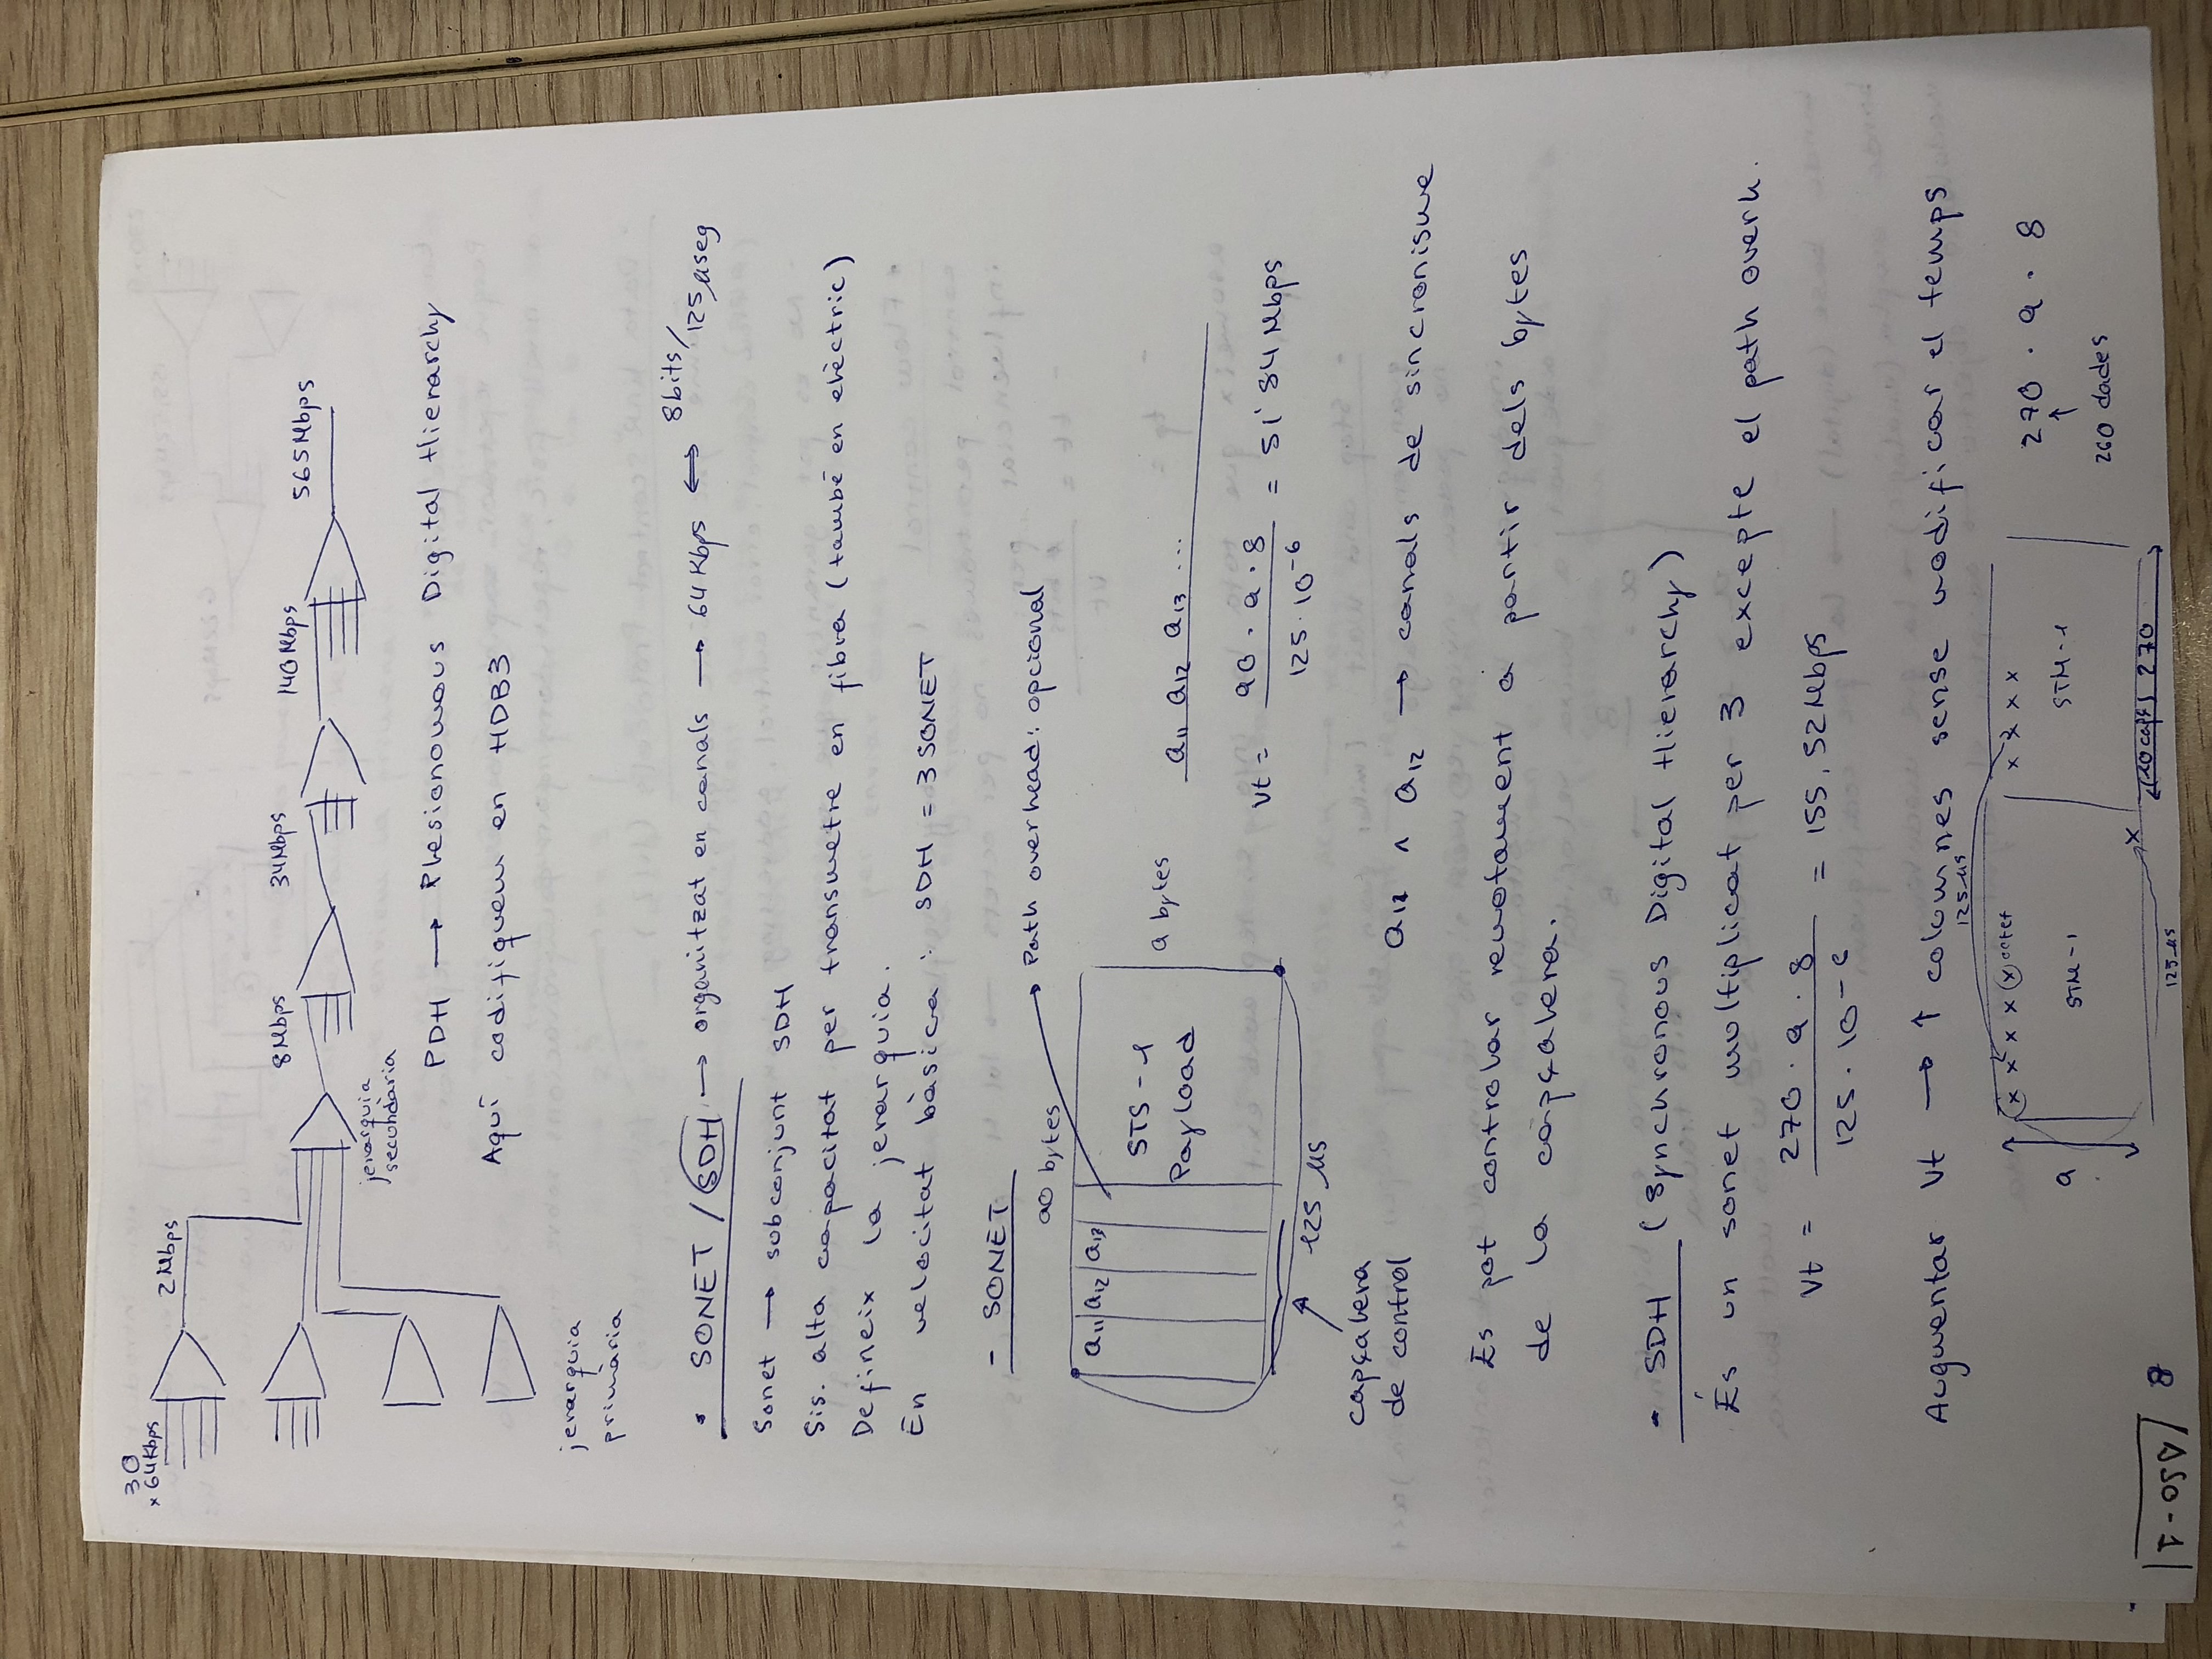 30
x 64Kbps
2 Mbps
8 Mbps
34 Mbps
140 Mbps
565 Mbps
jerarquia
secundària
PDH → Plesionowous Digital Hierarchy
Aquí codifiquem en HDB3
jerarquia
primària
• SONET / SDH → organitzat en canals → 64 Kbps ⟺ 8bits/125 μseg
Sonet → subconjunt SDH
Sis. alta capacitat per transmetre en fibra (també en elèctric)
Defineix la jerarquia.
En velocitat bàsica : SDH = 3 SONET
- SONET
90 bytes
Path overhead: opcional
a11 a12 a13
STS-1
Payload
9 bytes
a11 a12 a13 ...
Vt = 90 · 9 · 8 / 125·10^-6 = 51'84 Mbps
125 μs
capçalera
de control
a11 ∧ a12 → canals de sincronisme
Es pot controlar remotament a partir dels bytes
de la capçalera.
- SDH (Synchronous Digital Hierarchy)
És un sonet multiplicat per 3 excepte el path overh.
Vt = 270 · 9 · 8 / 125·10^-6 = 155,52 Mbps
Augmentar Vt → ↑ columnes sense modificar el temps
125 μs
x x x x x octet
x x x x
9
STM-1
STM-1
270 · 9 · 8
↑
260 dades
x
(10 capç) 270
125 μs
8
DSO-1